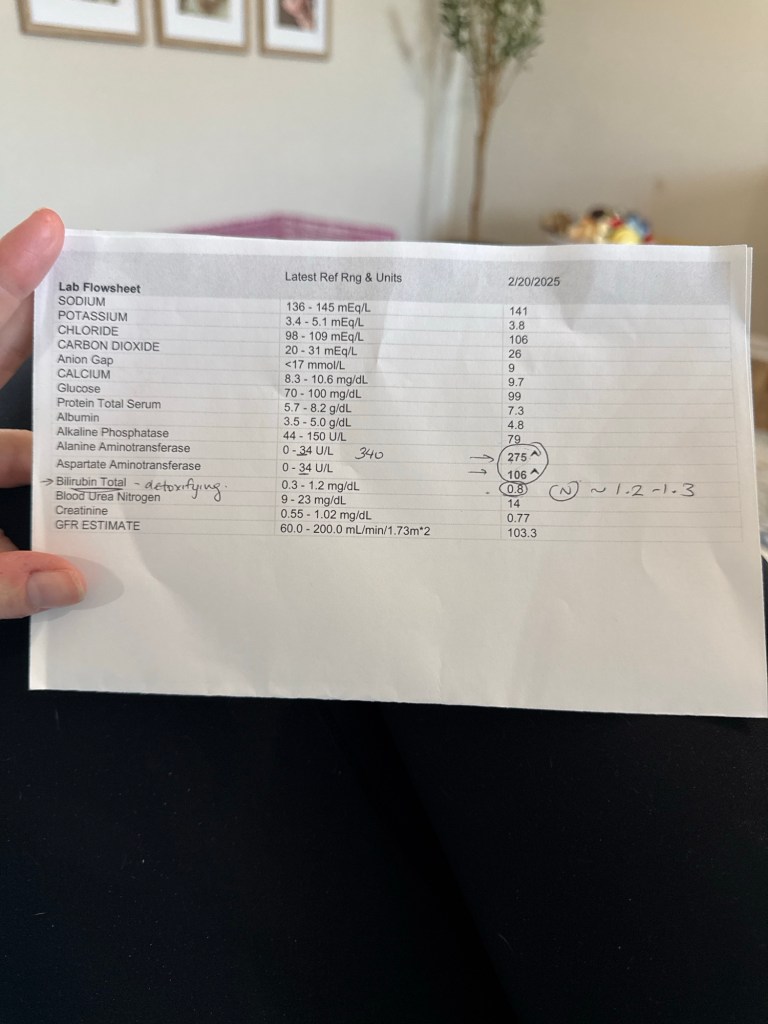 Lab Flowsheet Latest Ref Rng & Units 2/20/2025
SODIUM 136 - 145 mEq/L 141
POTASSIUM 3.4 - 5.1 mEq/L 3.8
CHLORIDE 98 - 109 mEq/L 106
CARBON DIOXIDE 20 - 31 mEq/L 26
Anion Gap <17 mmol/L 9
CALCIUM 8.3 - 10.6 mg/dL 9.7
Glucose 70 - 100 mg/dL 99
Protein Total Serum 5.7 - 8.2 g/dL 7.3
Albumin 3.5 - 5.0 g/dL 4.8
Alkaline Phosphatase 44 - 150 U/L 79
Alanine Aminotransferase 0 - 34 U/L 340 → 275 ^
Aspartate Aminotransferase 0 - 34 U/L → 106 ^
→ Bilirubin Total - detoxifying. 0.3 - 1.2 mg/dL 0.8 N ~ 1.2 - 1.3
Blood Urea Nitrogen 9 - 23 mg/dL 14
Creatinine 0.55 - 1.02 mg/dL 0.77
GFR ESTIMATE 60.0 - 200.0 mL/min/1.73m*2 103.3